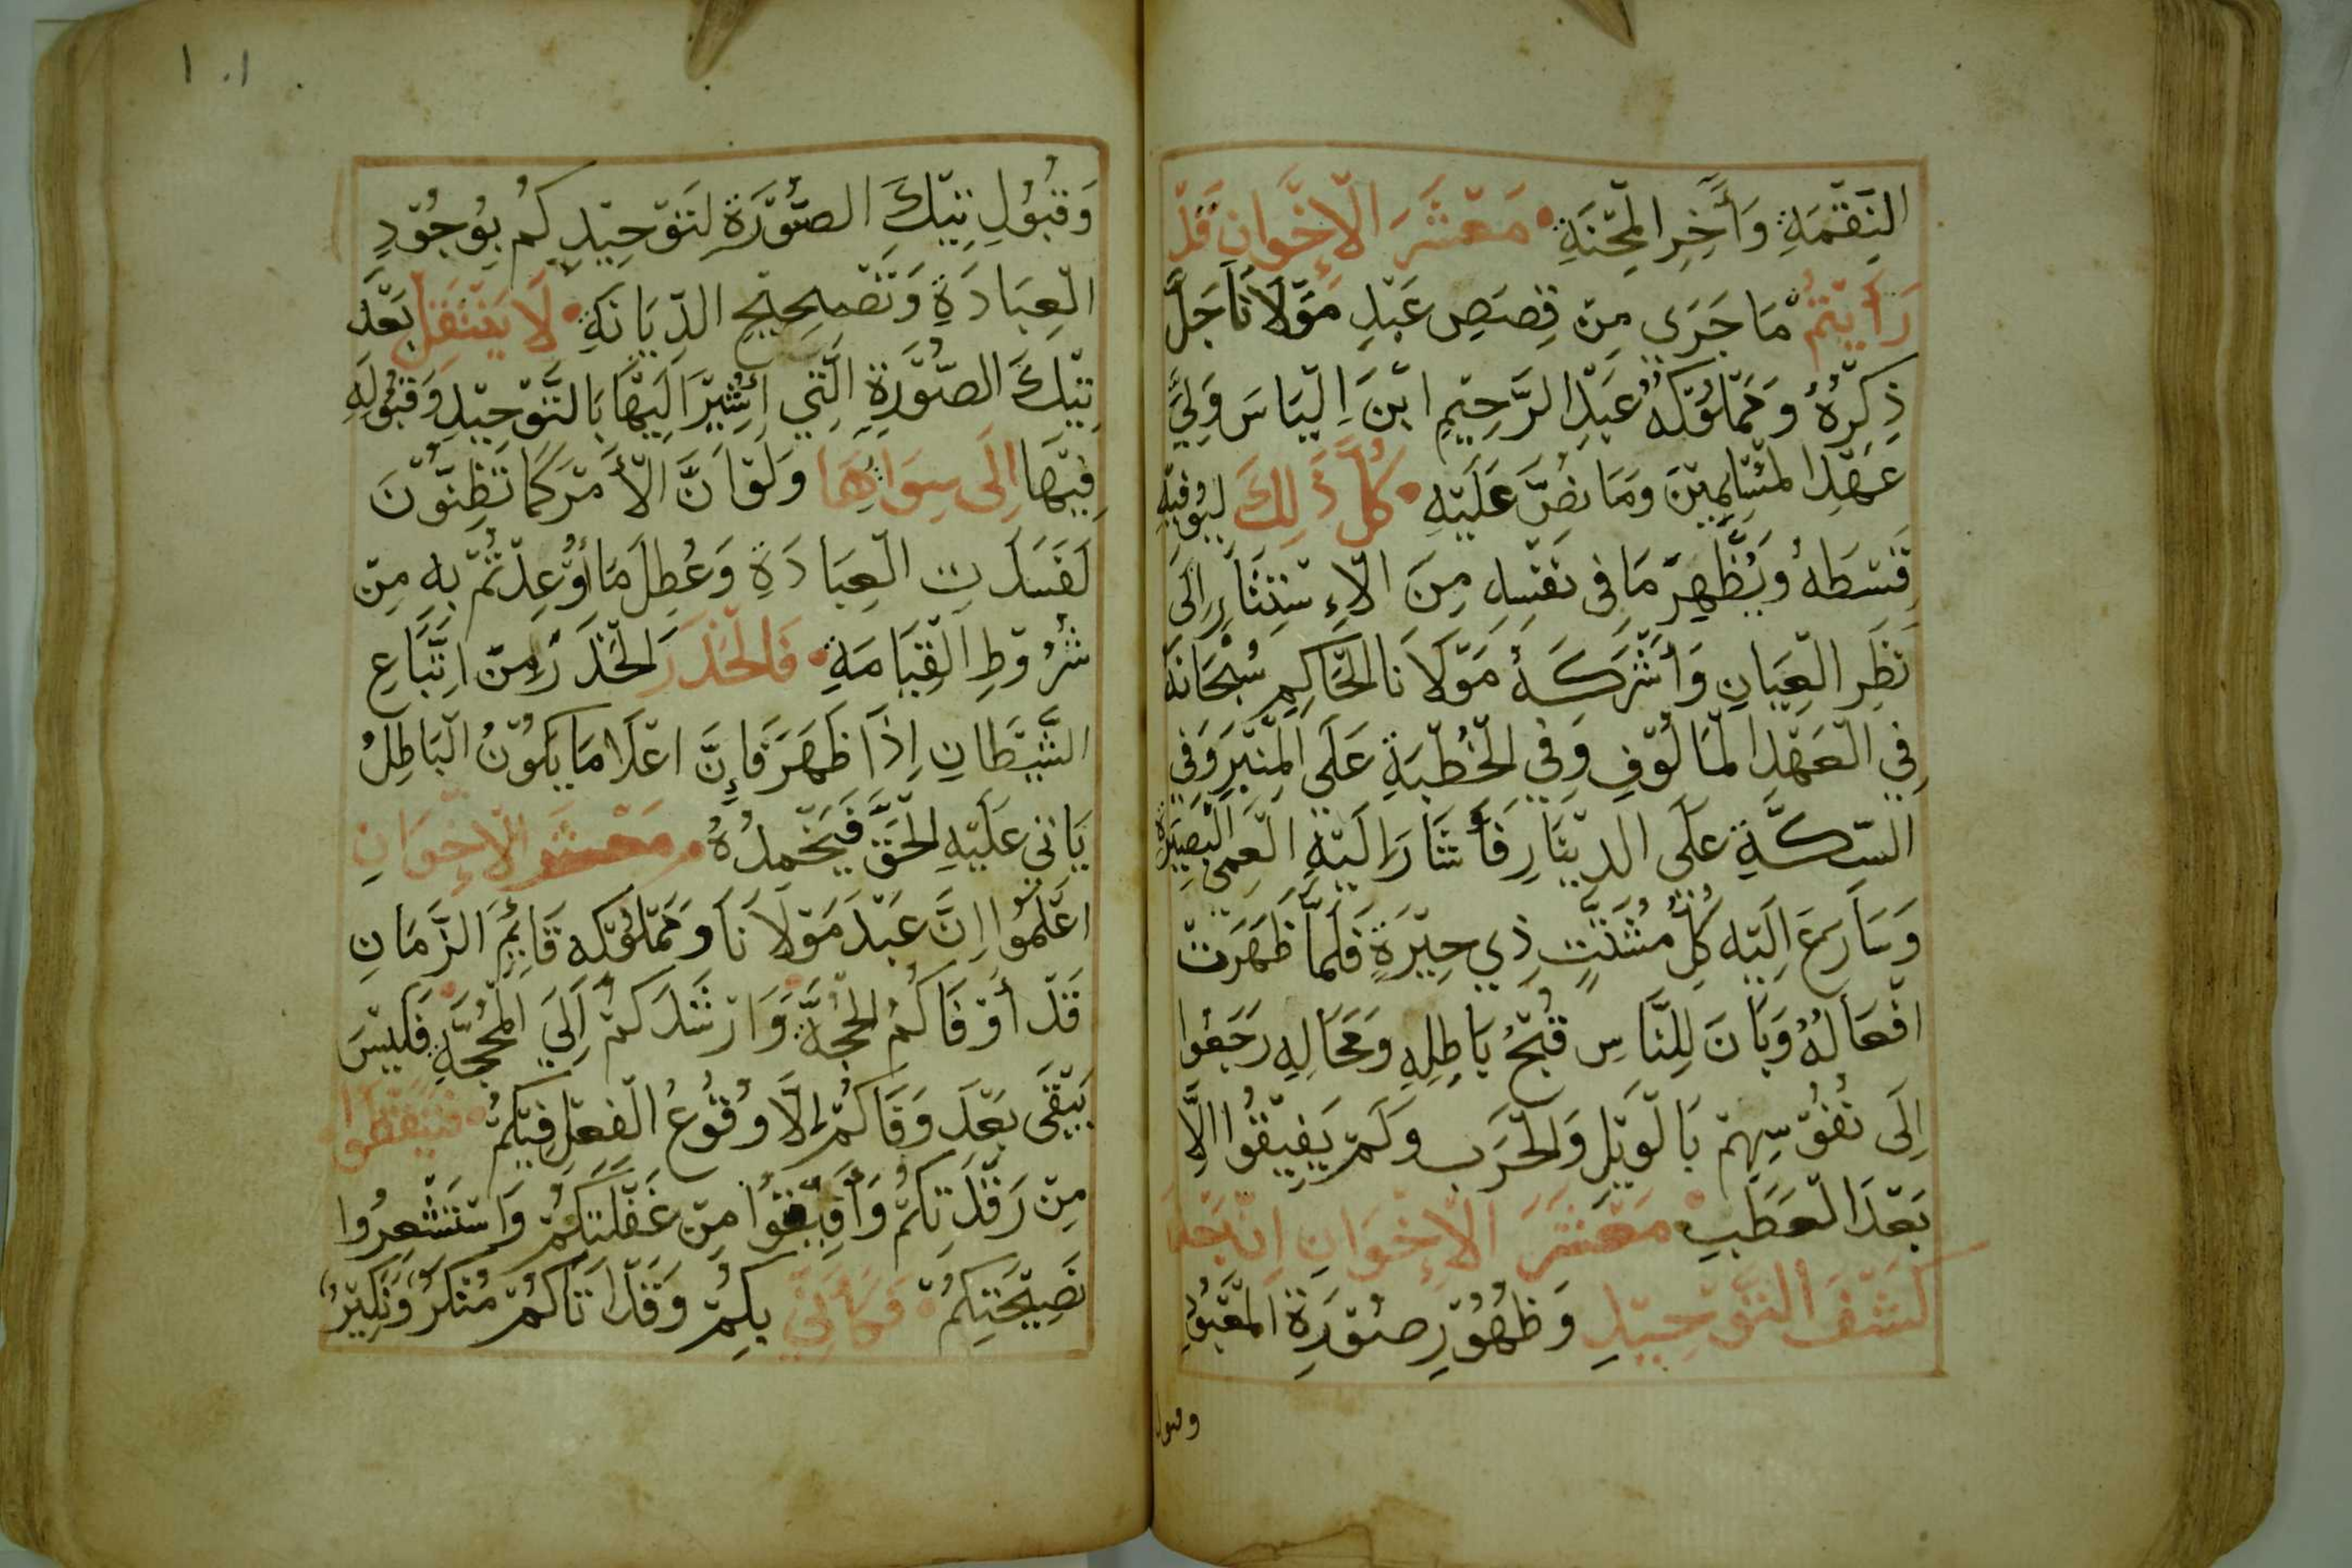 النِّقْمَةِ وَأَخِرِ الْمِحْنَةِ • مَعْشَرَ الْإِخْوَانِ قَدْ
رَأَيْتُمْ مَا جَرَي مِنْ قِصَصِ عَبْدِ مَوْلَانَا جَلَّ
ذِكِرْهُ وَمَمْلُوْكُهُ عَبْدِ الرَّحِيْمِ ابْنَ اِلْيَاسَ وَلِيَّ
عَهْدِ الْمُسْلِمِيْنَ وَمَا نصَّ عَلَيْهِ • كُلَّ ذَلِكَ لِيُوْفِيْهِ
قِسْطَهُ وَيُظْهِرَ مَا فِى نَفْسِهِ مِنَ الْاِءِسْتِتَارِ اِلَى
نَظَرِ الْعِيَانِ وَأَشْرَكَهُ مَوْلَانَا الْحَاكِمِ سُبْحَانَهُ
فِي الْعَهْدِ الْمَالُوْفِ وَفِي الْخُطْبَةِ عَلَى الْمِنْبَرِ وَفِي
السِّكَّةِ عَلَى الدِيْنَارِ فَأَشَارَ اِلَيْهِ الْعَمِى الْبَصِيْرَةِ
وَسَارَعَ اِلَيْهِ كُلُّ مُشَتَّتٍ ذِي حِيْرَةٍ فَلَمَّا ظَهَرَتْ
افْعَالُهُ وَبَانَ لِلنَّاسِ قُبْحُ بَاطِلِهِ وَمَحَالِهِ رَجَعُوا
اِلَى نُفُوْسِهِمْ بَالْوَيْلِ وَالْحَرَبِ وَلَمْ يَفِيْقُوا اِلَّا
بَعْدَ الْعَطَبِ • مَعْشَرَ الْإِخْوَانِ اِنْ بَعْدَ
كَشْفَ التَّوْحِيْدِ وَظُهُوْرِ صُوْرَةِ الْمَعْبُوْدِ
وقبول
١٠١
وَقُبُوْلِ تِيْكَ الصُّوْرَةِ لِتَوْحِيْدِكُمْ بِوُجُوْدِ
الْعِبَادَةِ وَتَصْحِيْحِ الدِّيَانَةِ • لَا يَنْتَقِلُ بَعْدَ
تِيْكَ الصُّوْرَةِ الَّتِي اُشِيْرَ اِلَيْهَا بَالتَّوْحِيْدِ وَقُبُوْلِهِ
فِيْهَا اِلَى سِوَائِهَا وَلَوْ اَنَّ الْأَمْرَ كَمَا تَظِنُّوْنَ
لَفَسَدَتِ الْعِبَادَةِ وَعُطِلَ مَا أُوْعِدْتُمْ بِهِ مِنْ
شُرُوْطِ الْقِيَامَةِ • فَالْحَذَرَ الْحَذَرَ مِنْ اتِّبَاعِ
الشَّيْطَانِ اِذَا ظَهَرَ فَاِنَّ اعْلَا مَا يَكُوْنُ الْبَاطِلُ
يَاتِي عَلَيْهِ الْحَقَّ فَيُخْمِدُهُ • مَعْشَرَ الْإِخْوَانِ
اعْلَمُوا اِنَّ عَبْدَ مَوْلَانَا وَمَمْلُوْكَهُ قَائِمُ الزَّمَانِ
قَدْ أَوْفَاكُمْ الْحُجَّةَ وَارْشَدَكُمْ اِلَي الْمَحَجَّةِ فَلَيْسَ
يَبْقَى بَعْدَ وَفَاكُمْ اِلَّا وُقُوْعُ الْفِعْلِ فِيْكُمْ • فَتَيَقَّظُوا •
مِنْ رَقْدَتِكُمْ وَأَفِيْقُوا مِنْ غَفْلَتِكُمْ وَاسْتَشْعِرُوا
نَصِيْحَتِكُمْ • فَكَأَنِّي بِكُمْ وَقَدْ اَتَاكُمْ مُنْكَرُ وَنَكِيْرُ